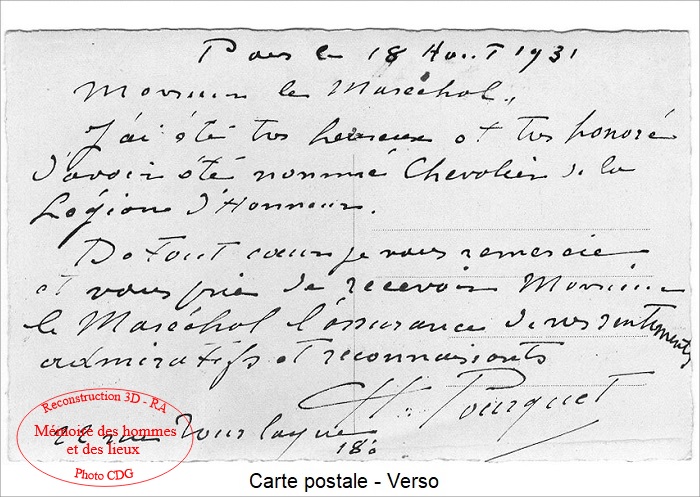 Paris le 18 Aout 1931
Monsieur le Maréchal,
J'ai été très heureux et très honoré
d'avoir été nommé Chevalier de la
Légion d'Honneur.
De tout cœur je vous remercie
et vous prie de recevoir Monsieur
le Maréchal l'assurance de mes sentiments
admiratifs et reconnaissants
H. Pourquet
22 rue Tourlaque
18e
Reconstruction 3D - RA
Mémoire des hommes
et des lieux
Photo CDG
Carte postale - Verso